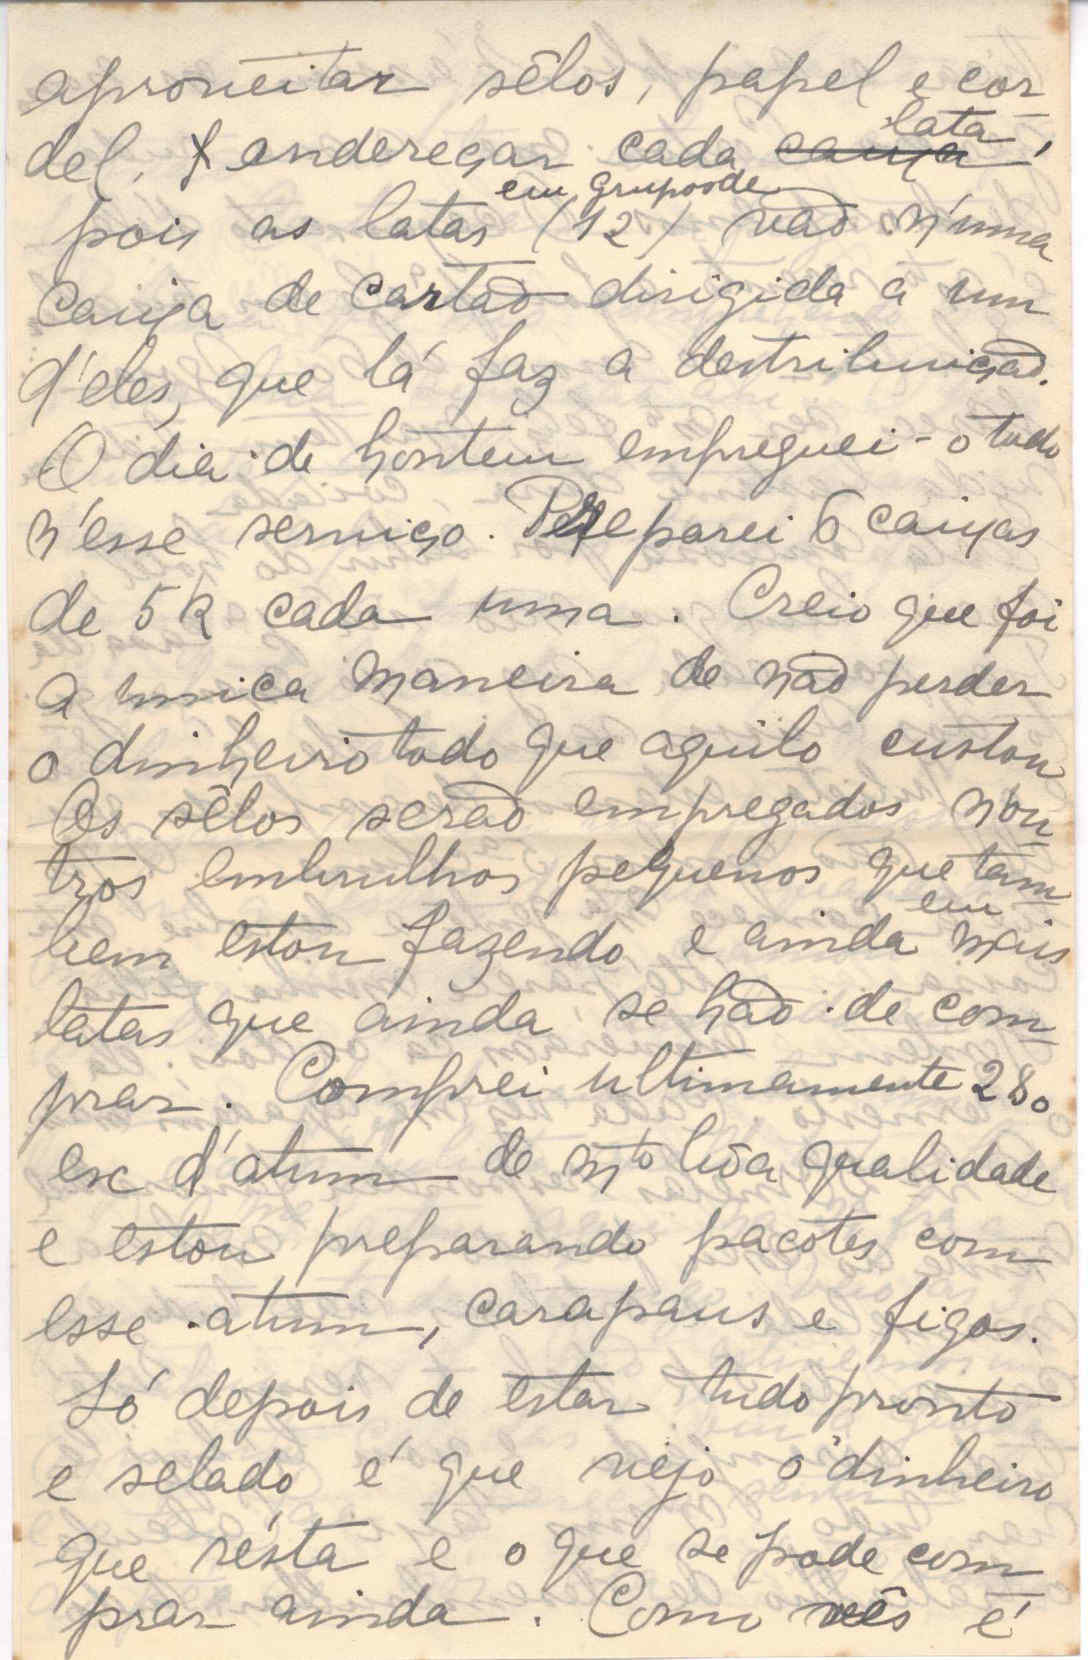 aproveitar sêlos, papel e cor-
del. X endereçar cada caixa lata,
pois as latas (em grupos de 12) vão n'uma
caixa de cartão dirigida a um
d'eles, que lá faz a destribuição.
O dia de hontem empreguei-o todo
n'esse serviço. Preparei 6 caixas
de 5 k cada uma. Creio que foi
a unica maneira de não perder
o dinheiro todo que aquilo custou
Os sêlos serão empregados nou-
tros embrulhos pequenos que tam-
bem estou fazendo e ainda em mais
latas que ainda se hão de com-
prar. Comprei ultimamente 280
esc d'atum de mto bôa qualidade
e estou preparando pacotes com
esse atum, carapaus e figos.
Só depois de estar tudo pronto
e selado é que vejo o dinheiro
que résta e o que se pode com-
prar ainda. Como vês é